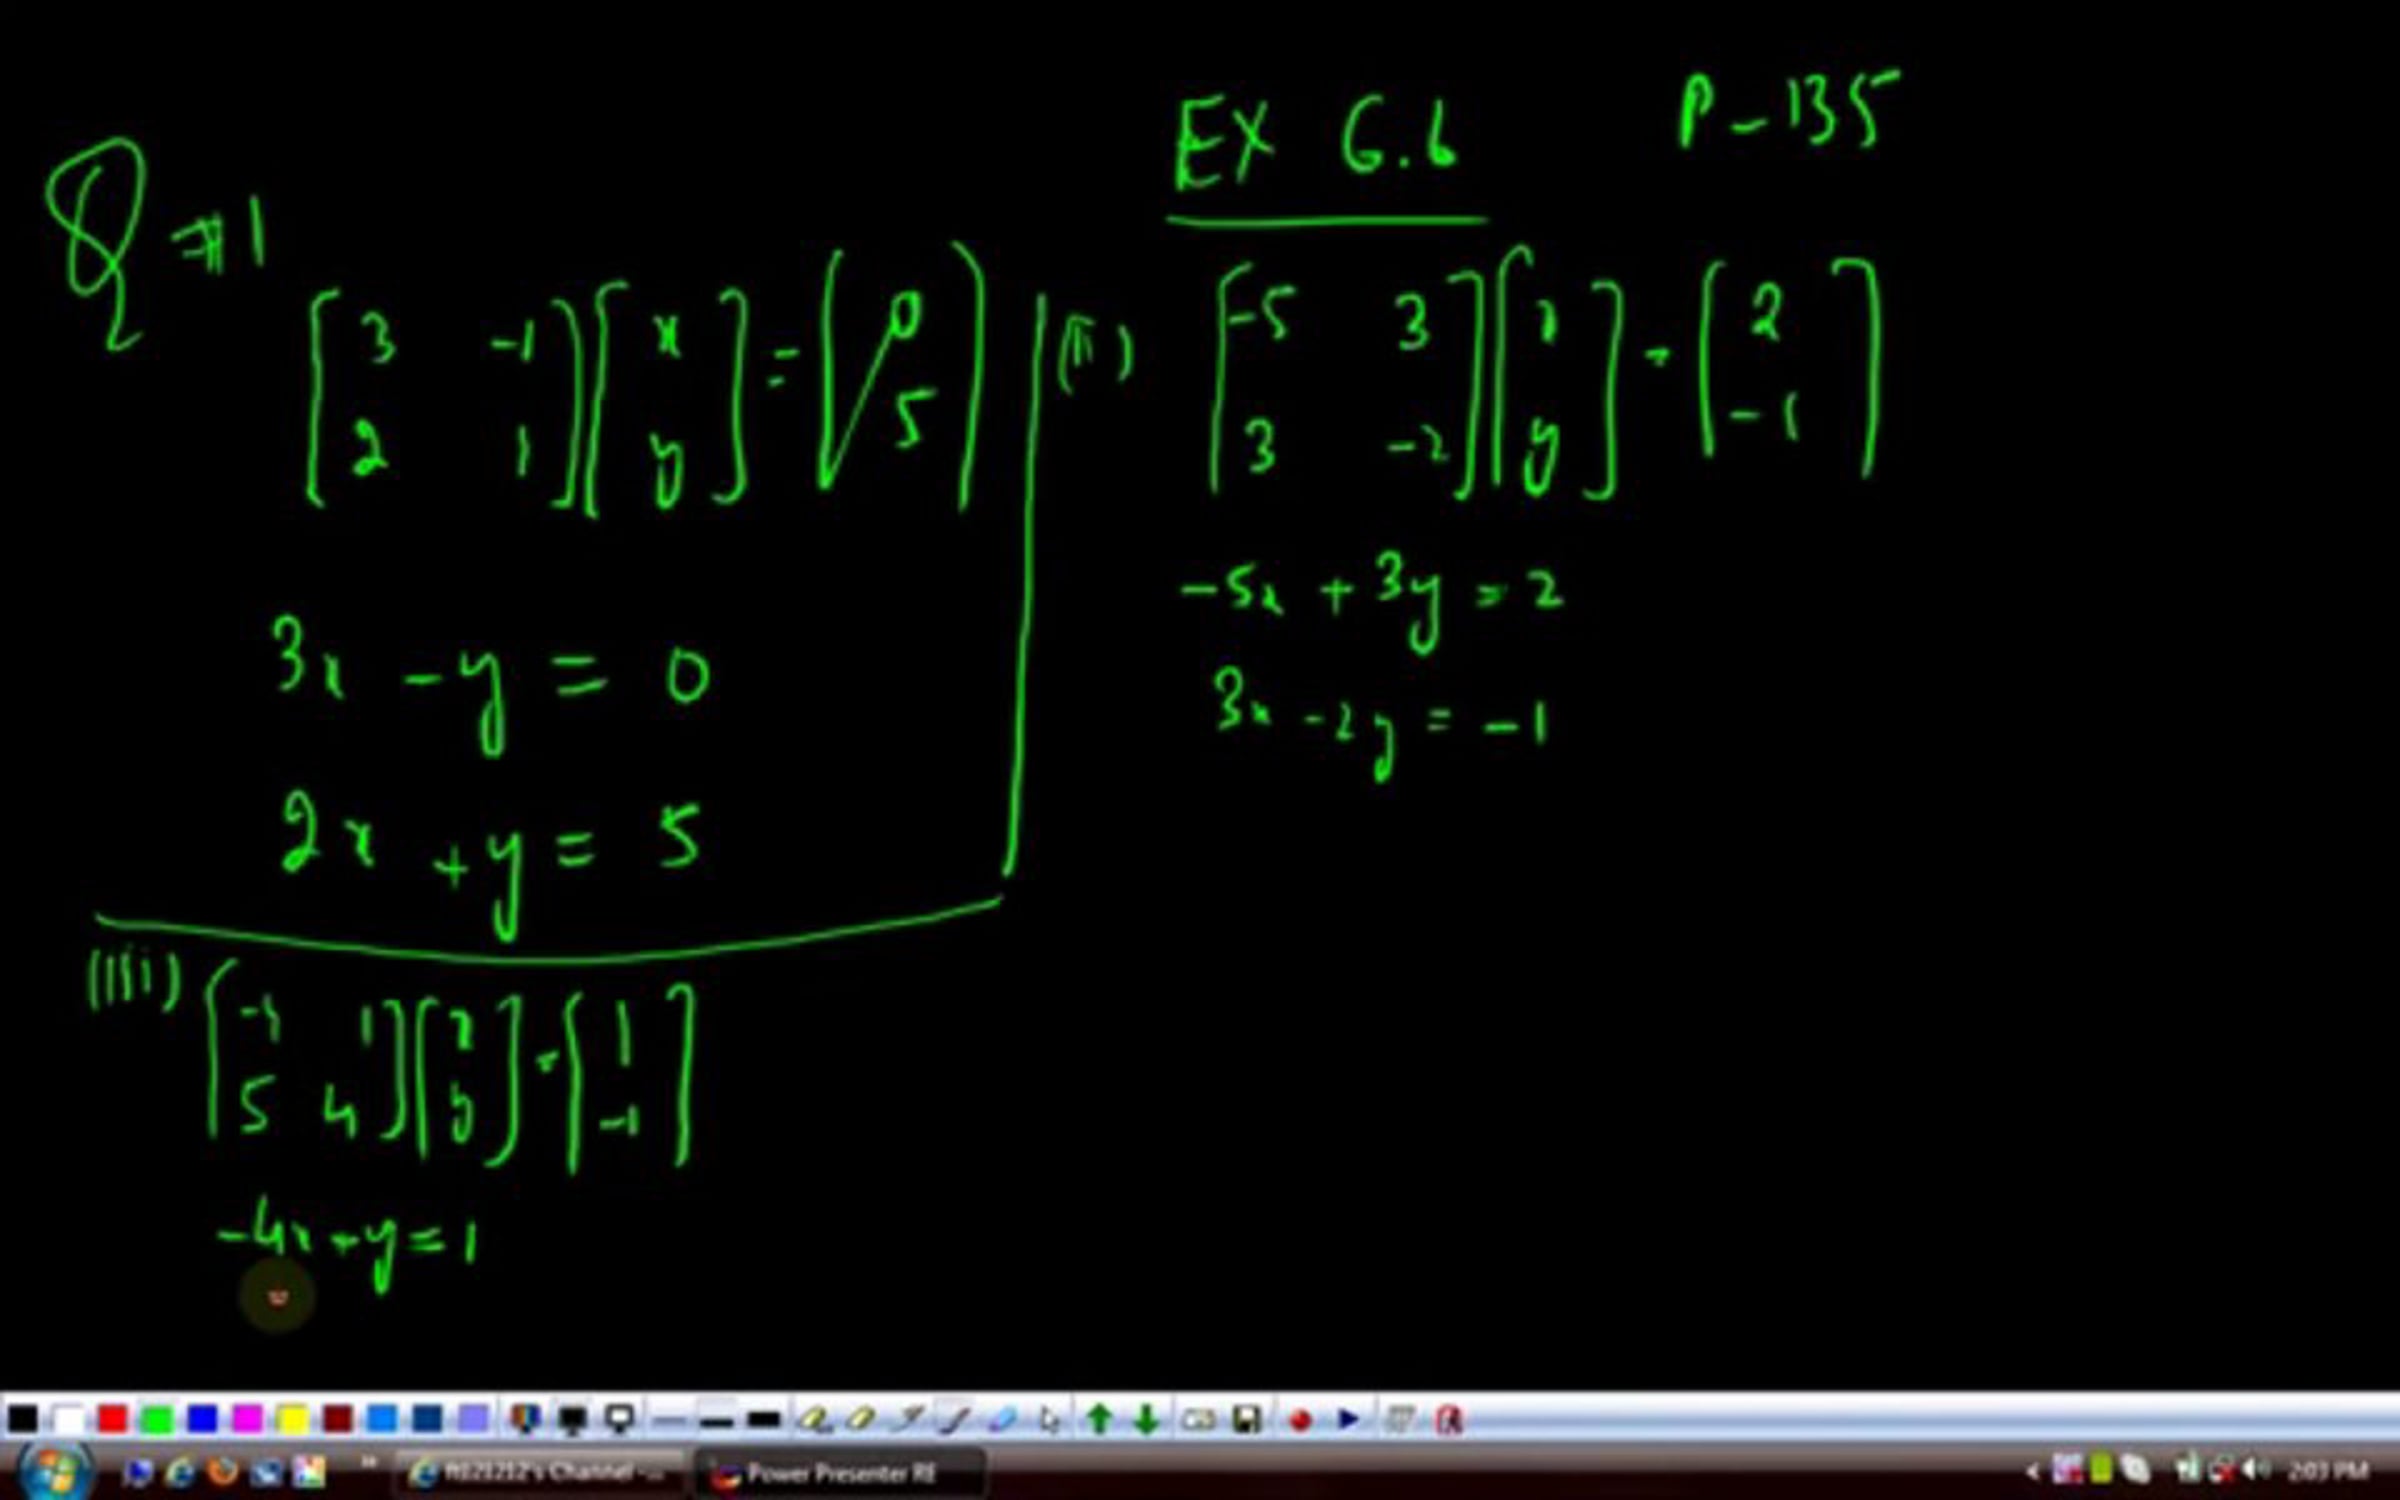 EX 6.6 P-135
Q#1
[3 -1
2 1] [x
y] = [0
5]
3x - y = 0
2x + y = 5
(ii) [-5 3
3 -2] [x
y] = [2
-1]
-5x + 3y = 2
3x - 2y = -1
(iii) [-4 1
5 4] [x
y] = [1
-1]
-4x + y = 1
Power Presenter RE
2:03 PM